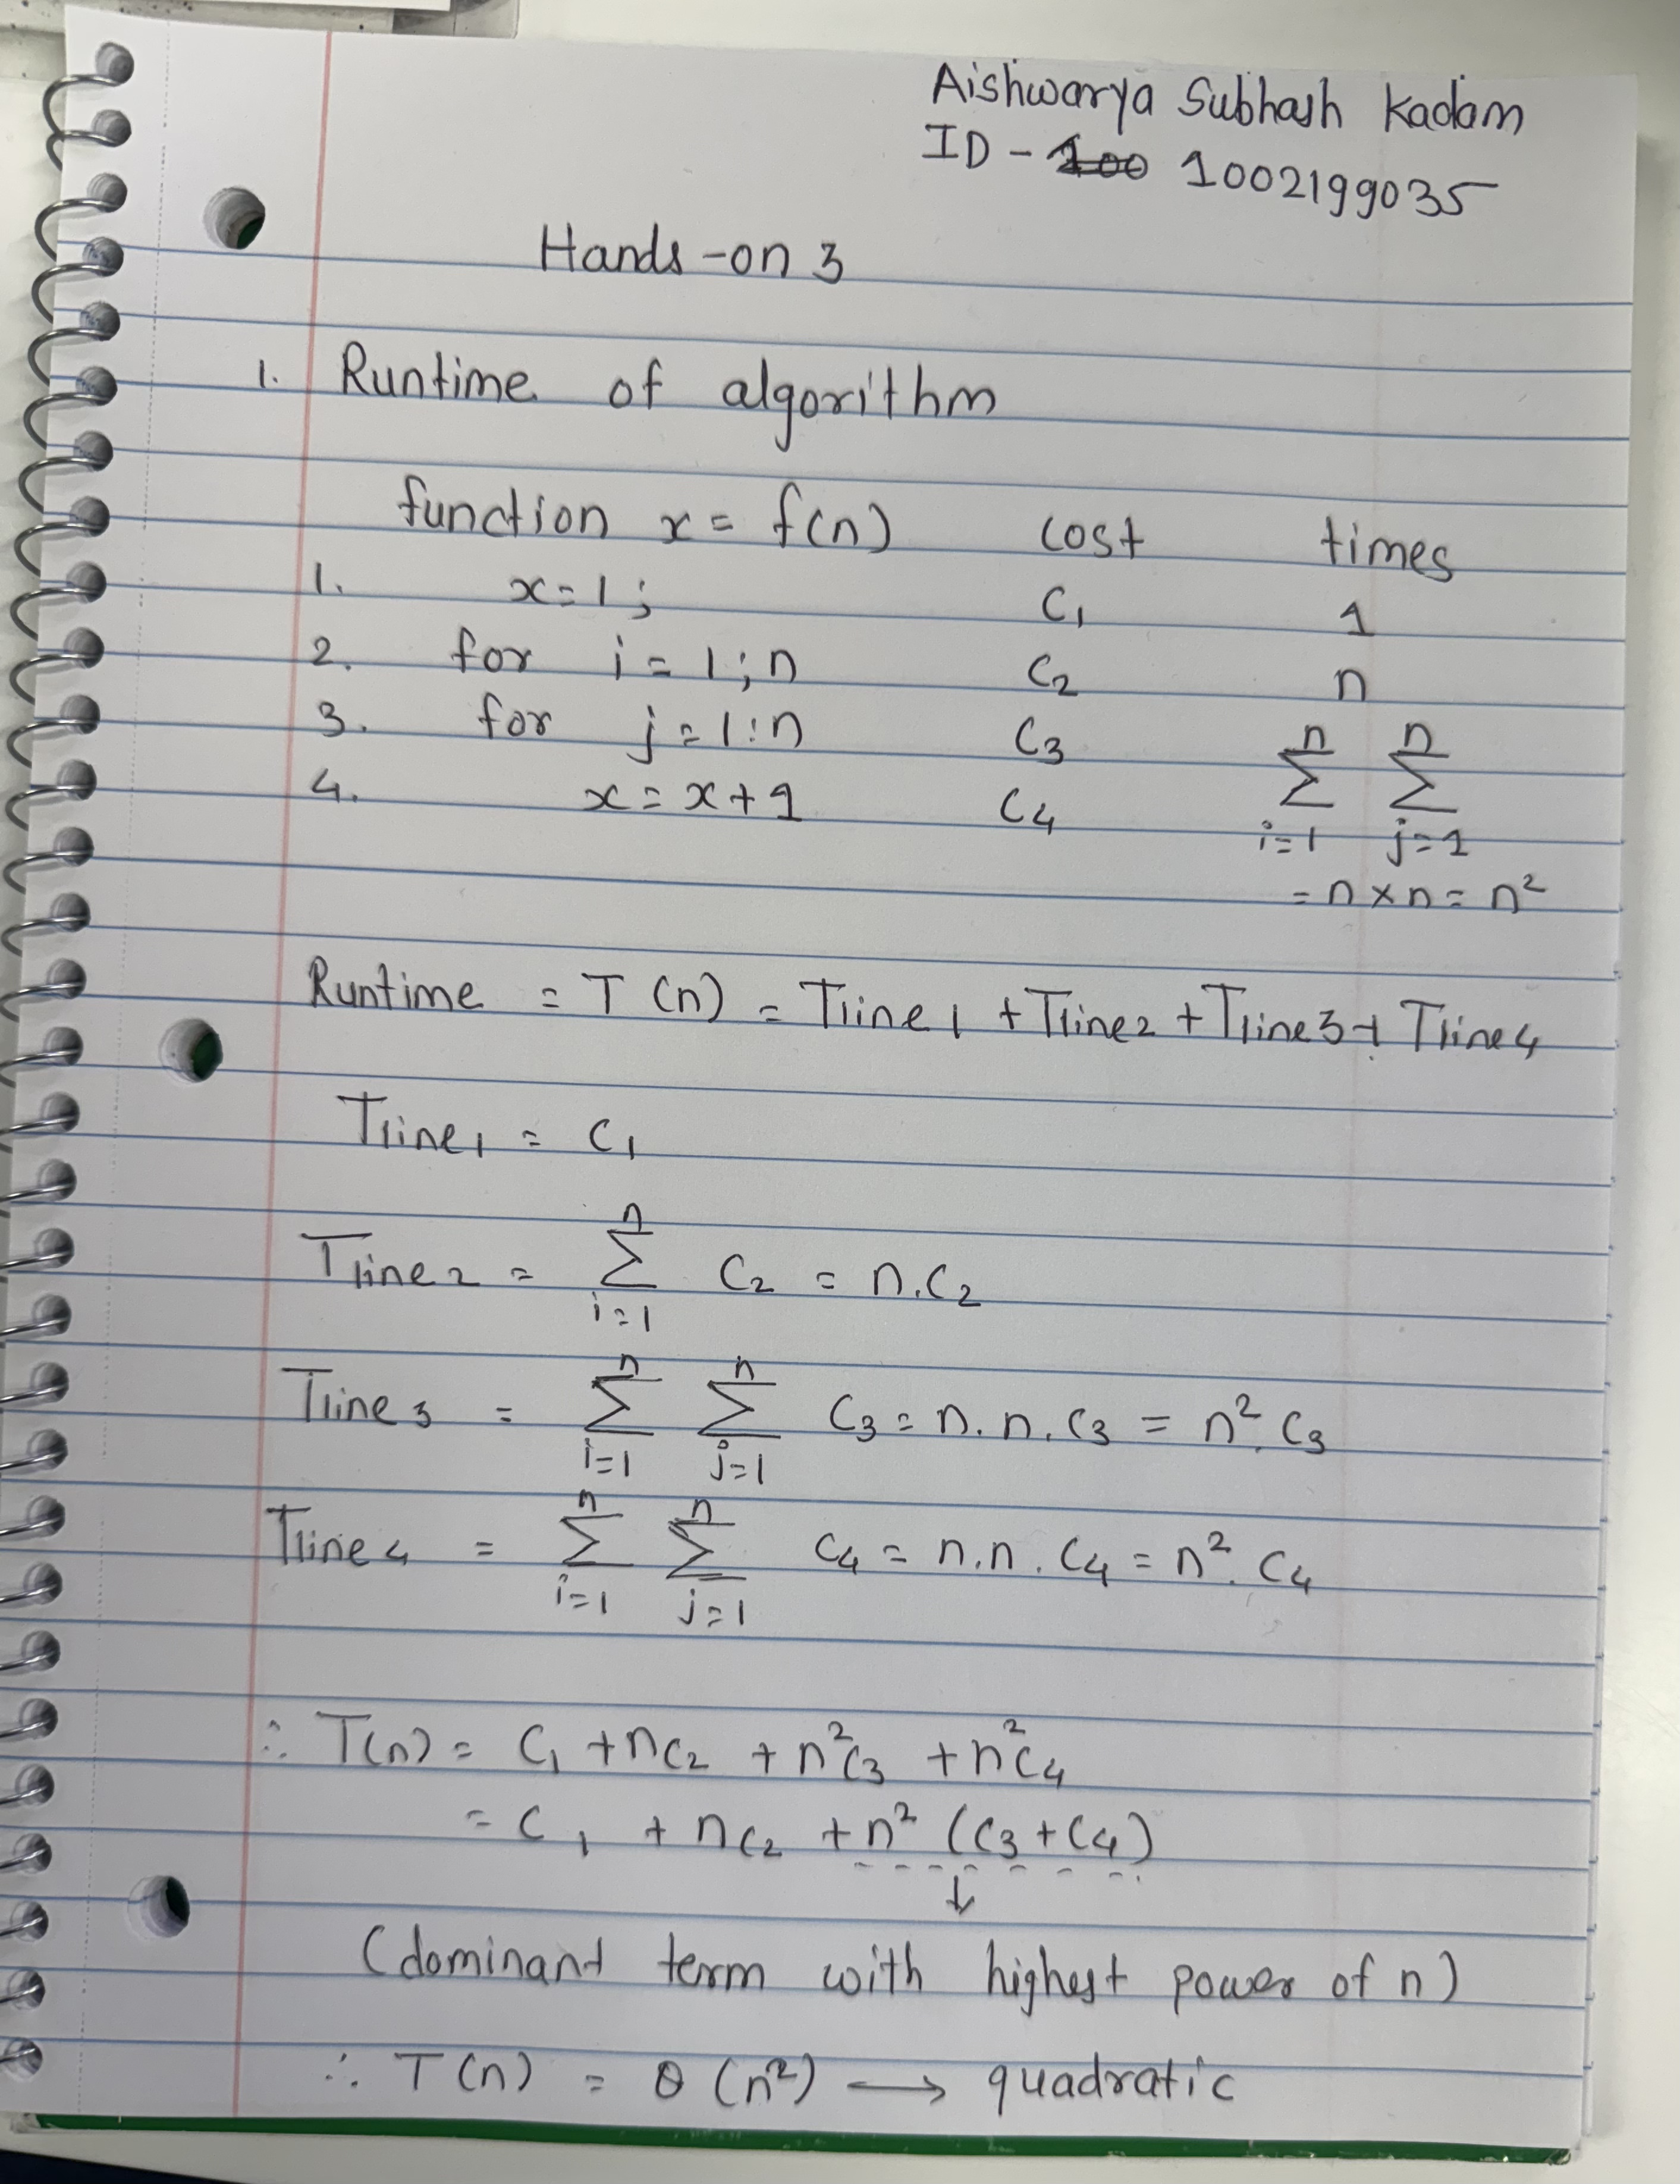 Aishwarya Subhash Kadam
ID - 100 1002199035
Hands-on 3
1. Runtime of algorithm
function x = f(n) cost times
1. x = 1; C1 1
2. for i = 1;n C2 n
3. for j = 1:n C3 n n
4. x = x + 1 C4 Σ Σ
i=1 j=1
= n × n = n²
Runtime = T(n) = Tline1 + Tline2 + Tline3 + Tline4
Tline1 = C1
n
Tline2 = Σ C2 = n.C2
i=1
n n
Tline3 = Σ Σ C3 = n.n.C3 = n².C3
i=1 j=1
n n
Tline4 = Σ Σ C4 = n.n.C4 = n².C4
i=1 j=1
∴ T(n) = C1 + nC2 + n²C3 + n²C4
= C1 + nC2 + n² (C3 + C4)
↓
(dominant term with highest power of n)
∴ T(n) = θ(n²) → quadratic